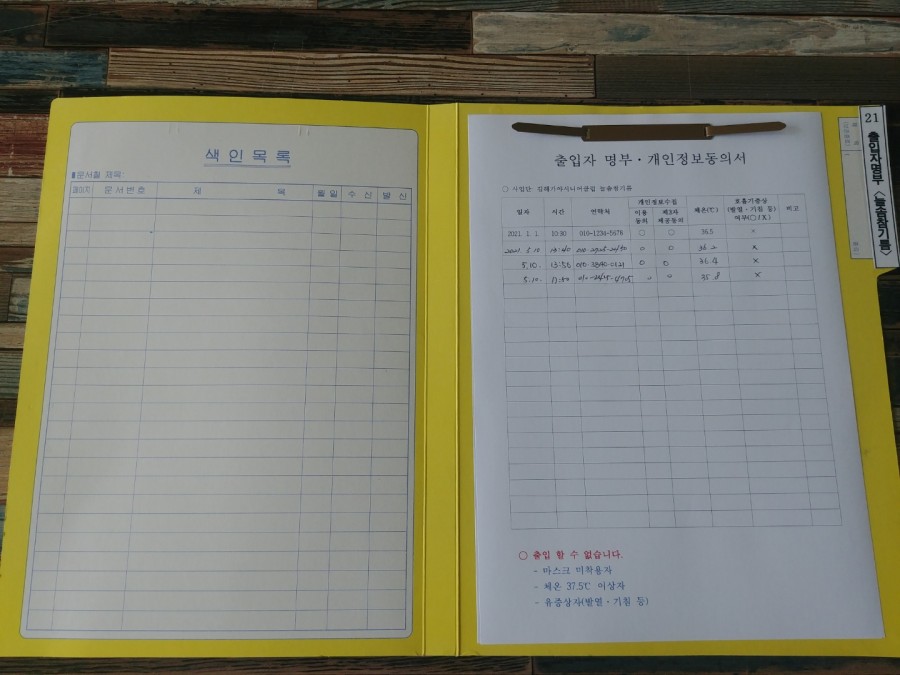 색 인 목 록
▮문서철 제목:
페이지 문서번호 제 목 월일 수 신 발 신
출입자 명부 · 개인정보동의서
○ 사업단: 김해가야시니어클럽 늘솜참기름
일자 시간 연락처 개인정보수집 이용 동의 제3자 제공동의 체온(℃) 호흡기증상 (발열·기침 등) 여부(○/X) 비고
2021. 1. 1. 10:30 010-1234-5678 ○ ○ 36.5 ×
2021. 5.10 o o 36.2 x
5.10. 13:50 o o 36.4 x
5.10. o o 35.8 x
○ 출입 할 수 없습니다.
- 마스크 미착용자
- 체온 37.5℃ 이상자
- 유증상자(발열·기침 등)
21
출입자명부 <늘솜참기름>